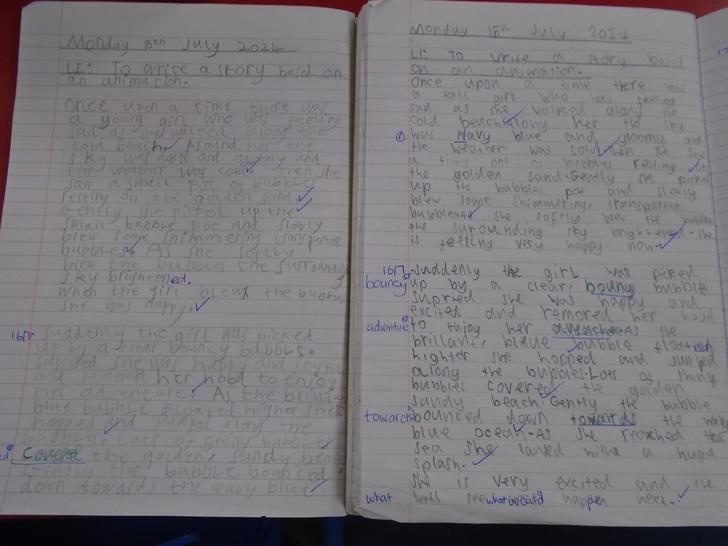 Monday 15th July 2024
LI: To write a story based on
an animation.
Once upon a time there was
a young girl who was feeling
sad as she walked along the
cold beach. Around her the
sky was dark and gloomy and
the weather was cold. Then she
saw a small pot of bubbles
resting on the golden sand.
Gently she picked up the
small bubble pot and slowly
blew some shimmering
bubbles. As she softly
blew the bubbles the
sky brightened.
when the girl blew the
she was happy.
16/7 Suddenly the girl was picked
up by a clear bouncy bubble.
she was happy and
and her hood to enjoy
her adventure. As the
blue bubble floated
hopped and along the
Lots of shiny bubbles
Covered the golden, sandy
Gently the bubble bounced
down towards the wavy blue
Monday 15th July 2024
LI: To write a story based
on an animation.
Once upon a time there was
a tall girl who was feeling
sad as she walked along the
cold beach. Along her the sky
was Navy blue and gloomy and
the weather was cold. Then she
a tiny pot of bubbles resting on
the golden sand. Gently she picked
up the bubbles pot and slowly
blew some shimmering, transparent
bubbles. she softly blew the
the surounding sky brightened. she
is feeling very happy now.
16/7 Suddenly the girl was picked
bouncy up by a clear, bouncy bubble
she was happy and
excited and removed her hood
adventure to enjoy her As the
brillant, blue bubble floated
highter she hopped and jumped
along the bubbles. Lots of shiny
bubbles covered the golden
sandy beach. Gently the bubble
towards bounced down towards the wavy
blue ocean. As she reached the
sea she landed with a huge
splash.
she is very excited and she
what will see what would happen next.